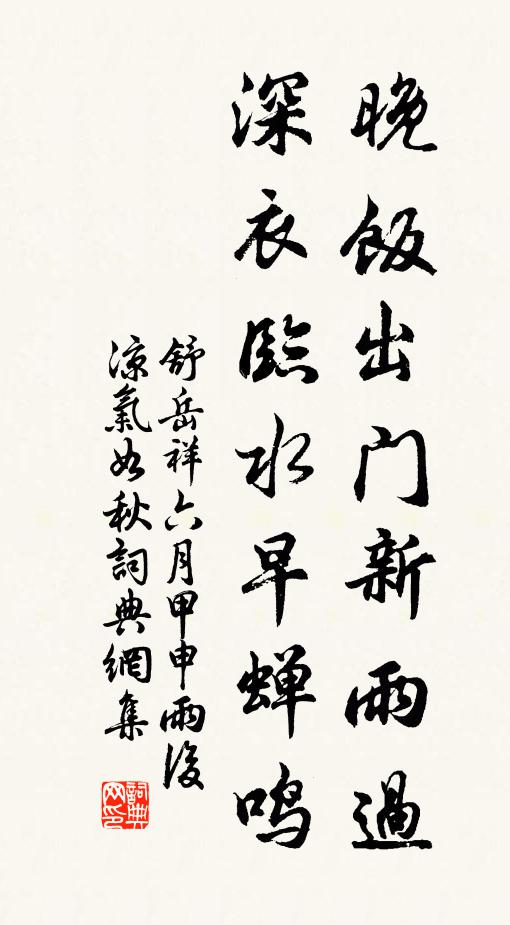 晚飯出门新雨過
深衣臨水早蝉鸣
舒岳祥六月甲申雨後
凉氣如秋詞典網集
詞典
网印